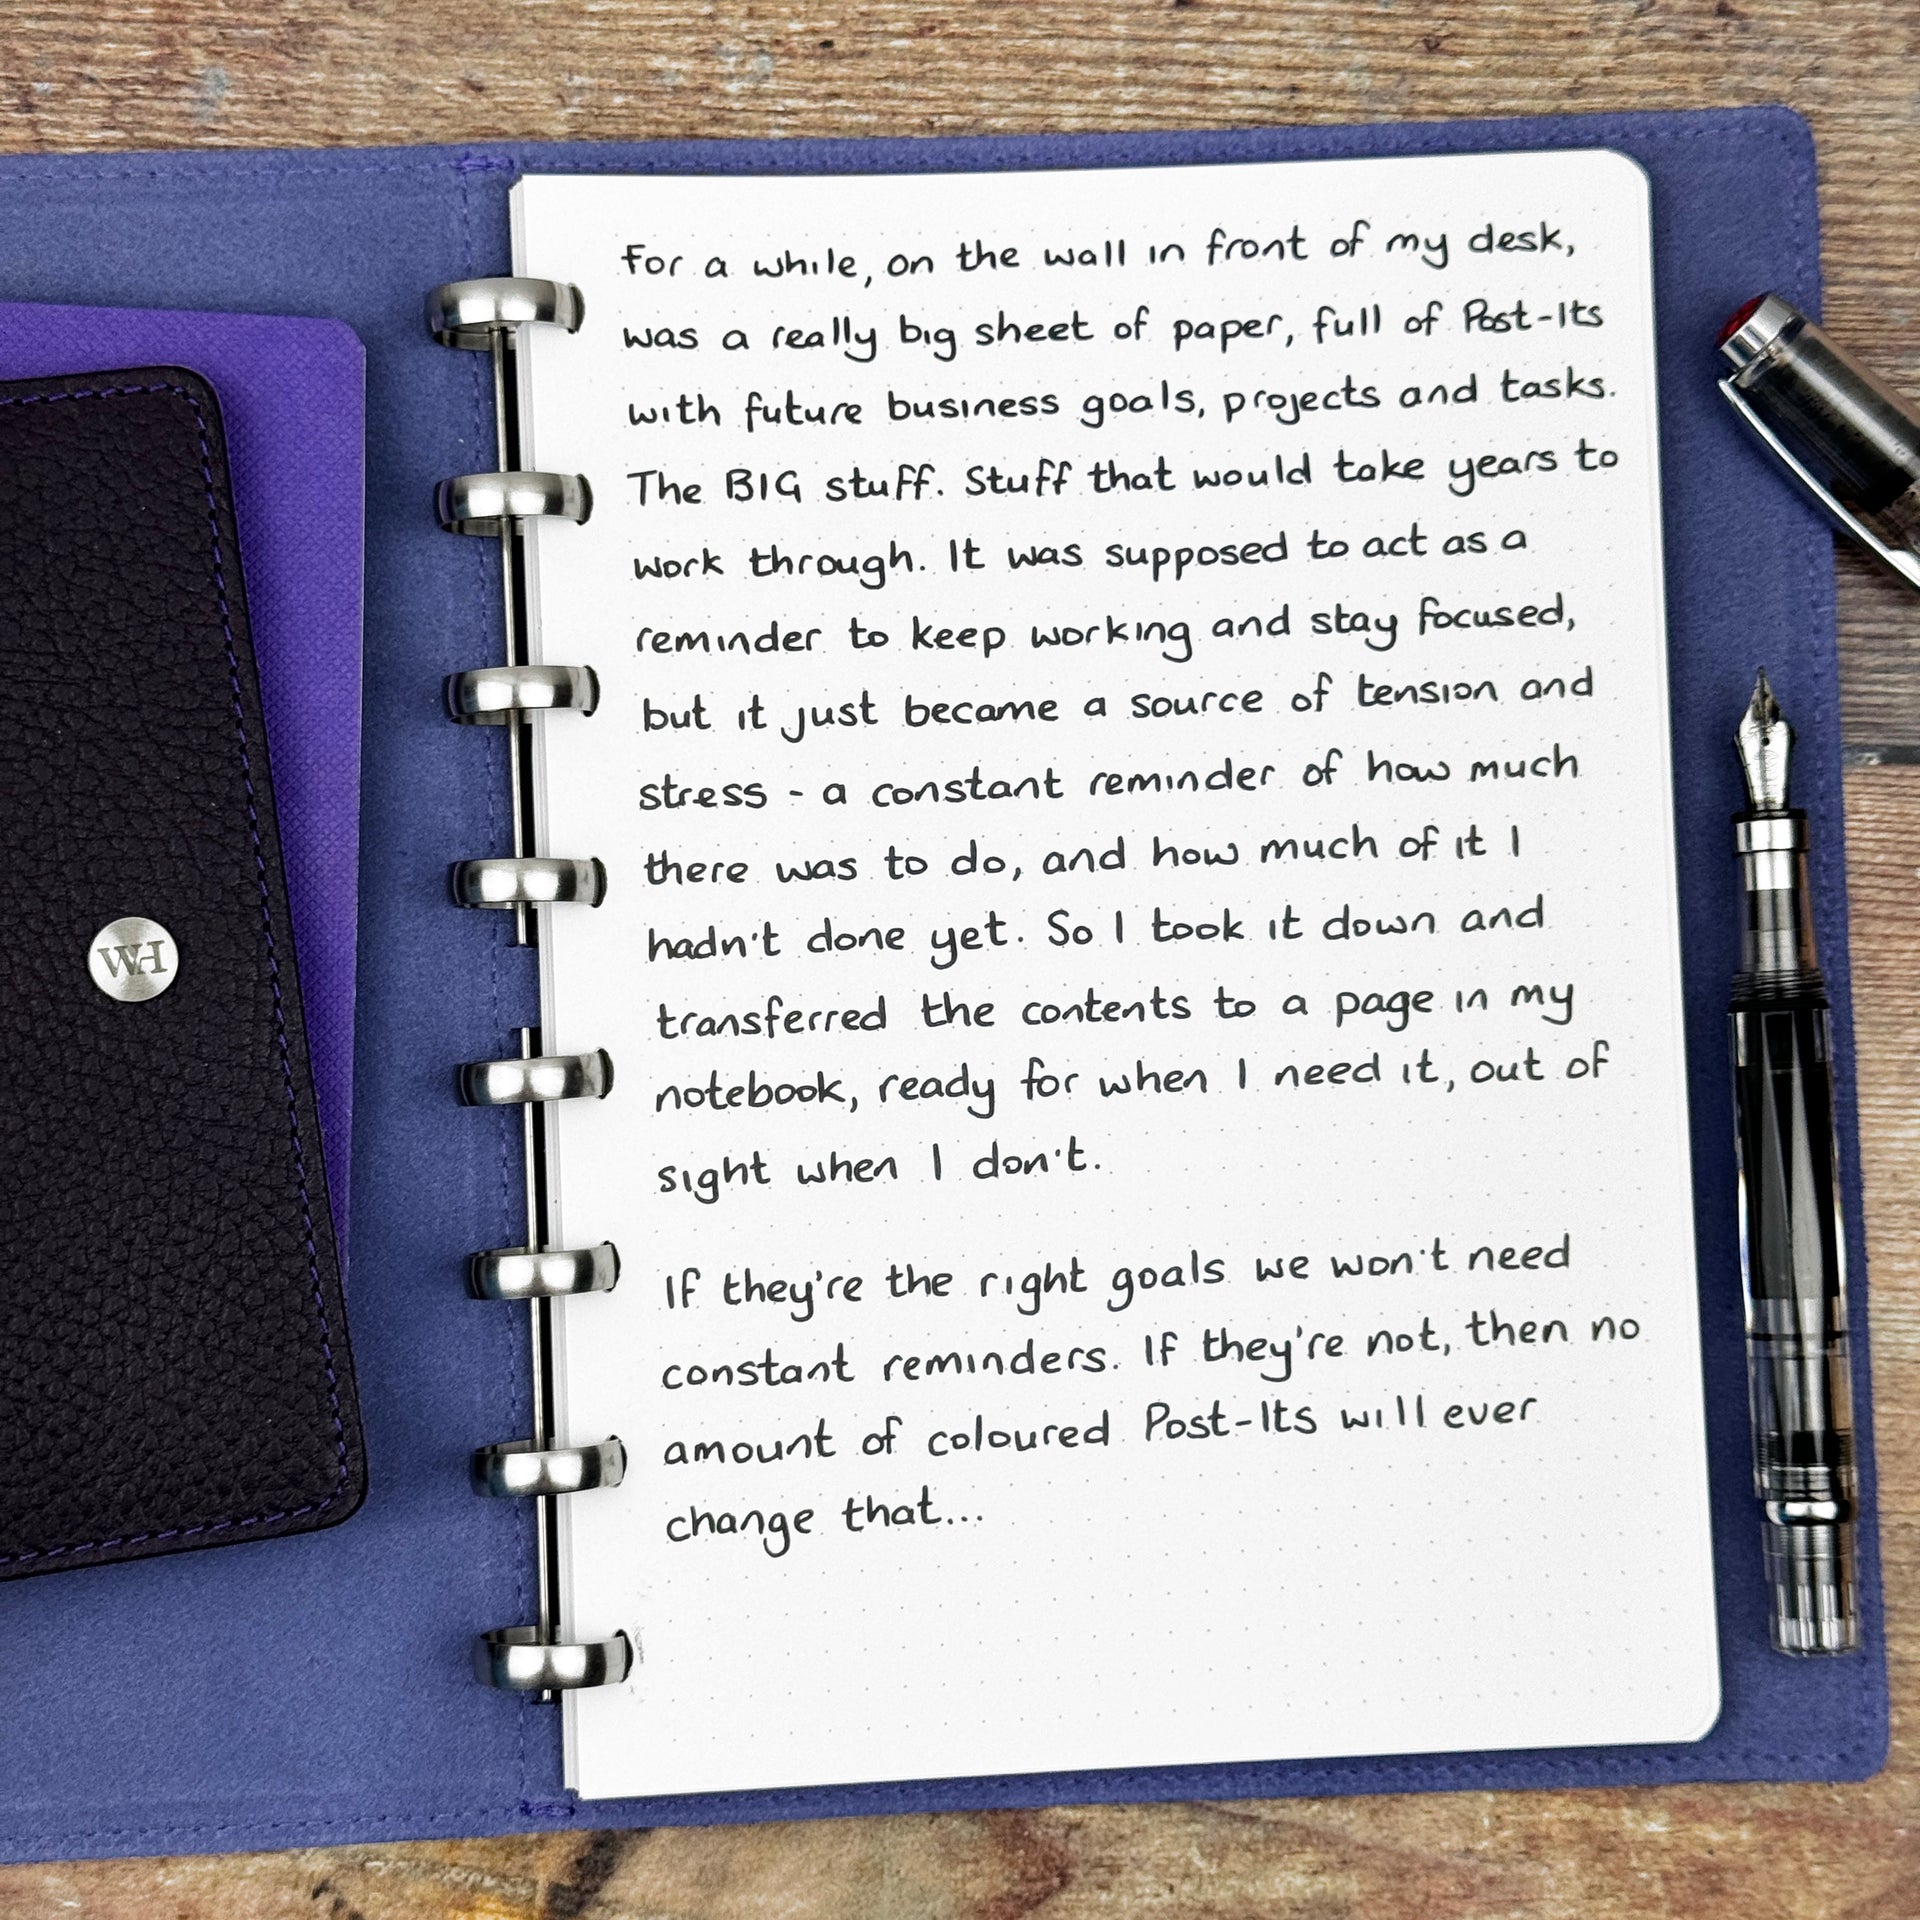 WH
For a while, on the wall in front of my desk,
was a really big sheet of paper, full of Post-Its
with future business goals, projects and tasks.
The BIG stuff. Stuff that would take years to
work through. It was supposed to act as a
reminder to keep working and stay focused,
but it just became a source of tension and
stress - a constant reminder of how much
there was to do, and how much of it I
hadn't done yet. So I took it down and
transferred the contents to a page in my
notebook, ready for when I need it, out of
sight when I don't.
If they're the right goals we won't need
constant reminders. If they're not, then no
amount of coloured Post-Its will ever
change that...